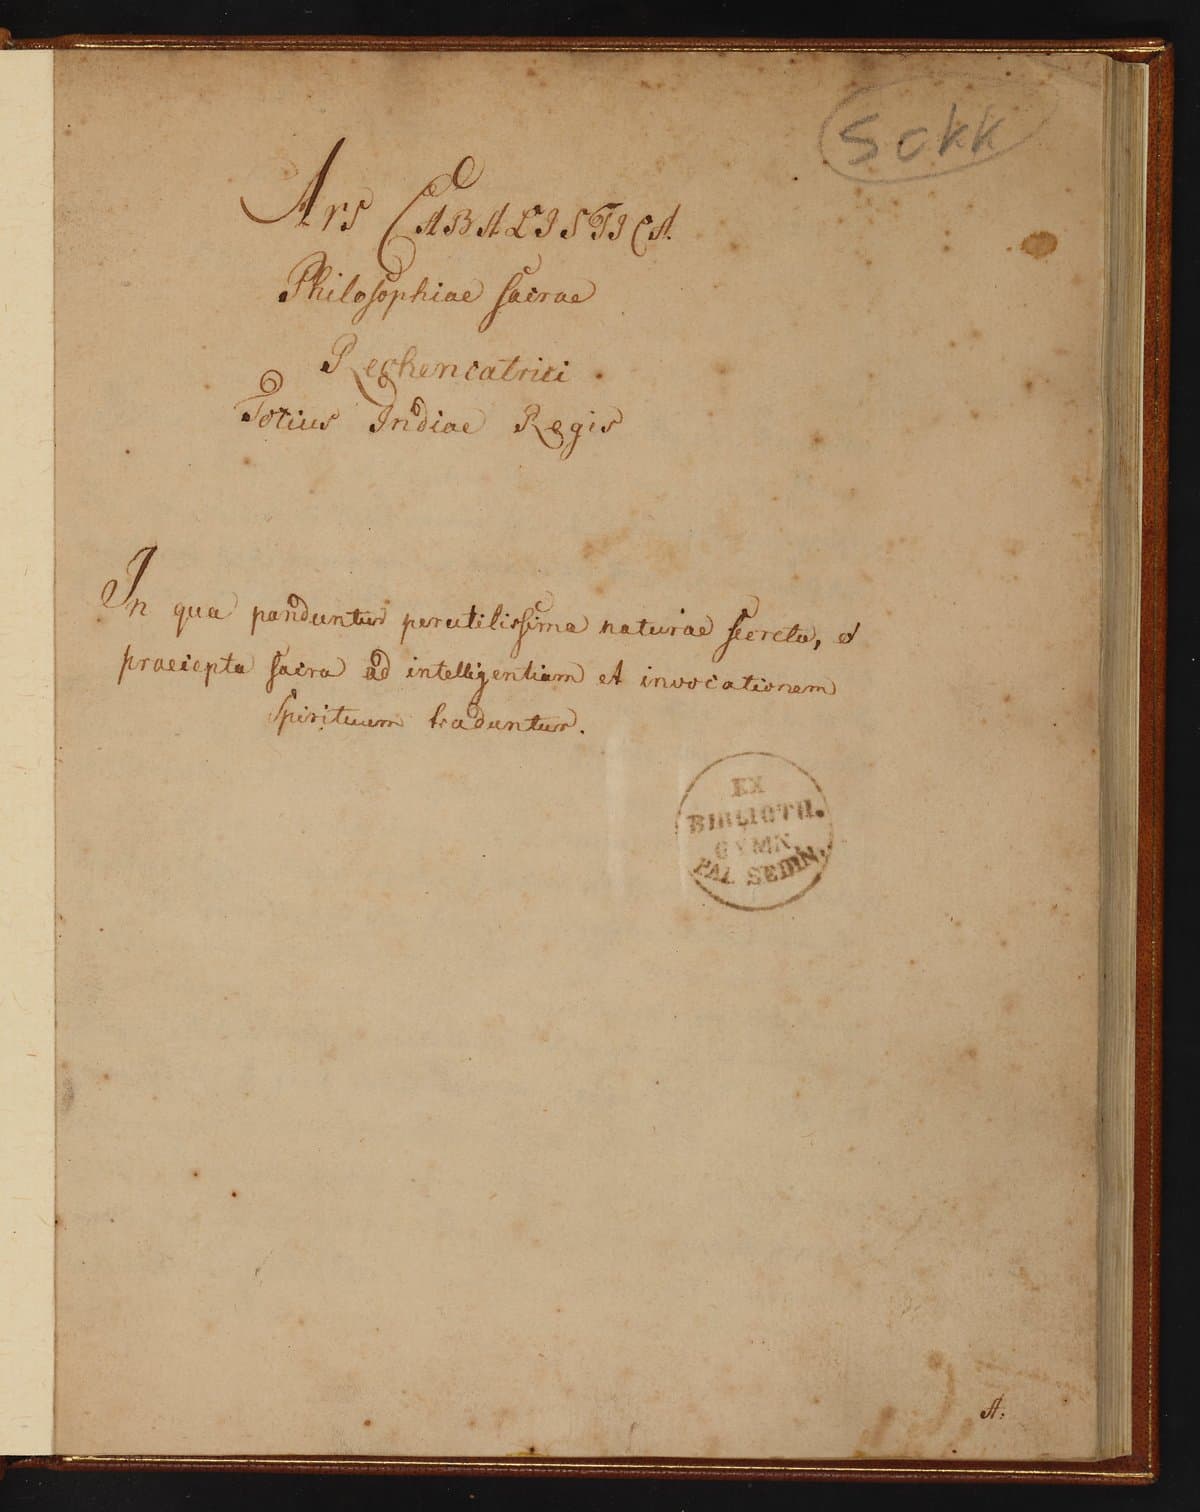 sckk
Ars CABALISTICA.
Philosophiae sacrae
Rechencatrici
Totius Indiae Regis
In qua panduntur perutilissima naturae secreta, et
praecepta sacra ad intelligentiam et invocationem
Spirituum traduntur.
EX
BIBLIOTH.
GYMN.
PAL SEDIN.
A.